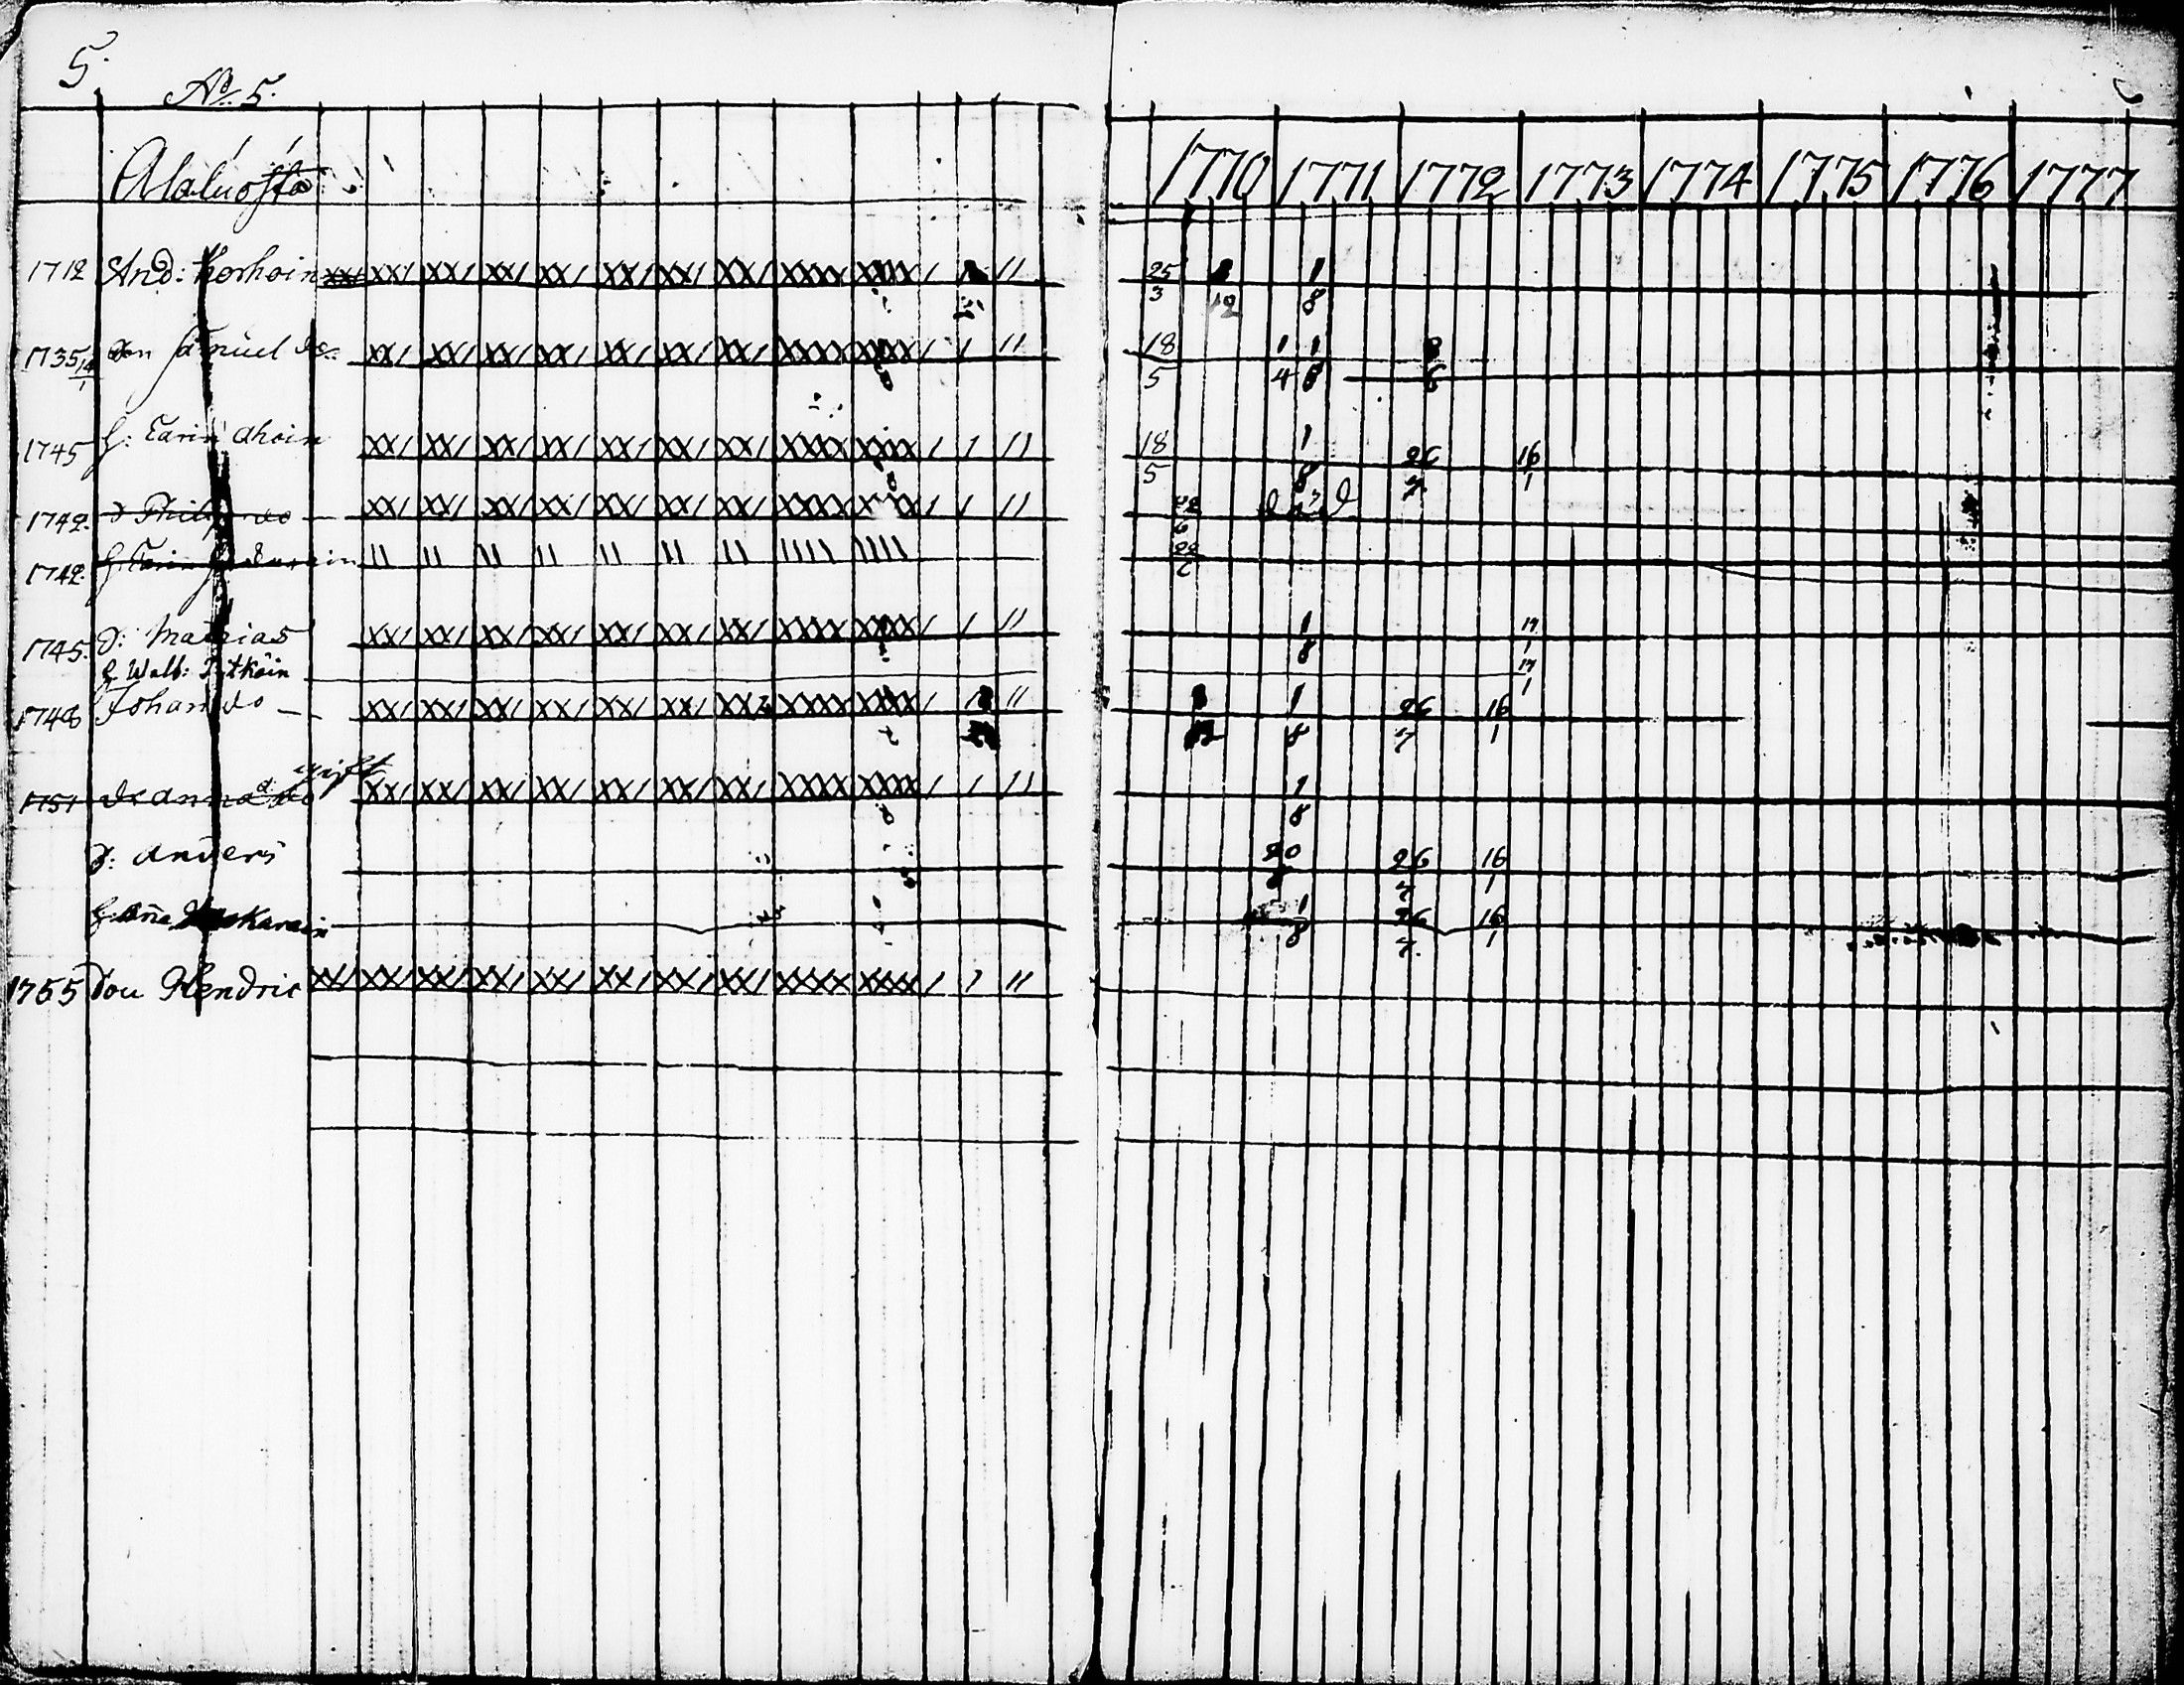 5.
No. 5.
Alaluosta 1770 1771 1772 1773 1774 1775 1776 1777
1712 And: Korhoin XX/ XX/ XX/ XX/ XX/ XX/ XX/ XX/ XXXX XXXX / 11 25/3 12 1/8
1735 14/1 Son Samuel do XX/ XX/ XX/ XX/ XX/ XX/ XX/ XXXX XXXX / / 11 18/5 1/4 1/8 8/6
1745 h: Carin Ahoin XX/ XX/ XX/ XX/ XX/ XX/ XX/ XXXX XXXX / / 11 18/5 1/8 26/7 16/1
1742. d Philip do XX/ XX/ XX/ XX/ XX/ XX/ XX/ XXXX XXXX / / 11 22/6 död
1742. h: Carin 11 11 11 11 11 11 11 1111 1111 22/6
1745. d: Mathias XX/ XX/ XX/ XX/ XX/ XX/ XX/ XXXX XXXX / / 11 1/8 17/1
h Walb: Pitkäin 17/1
1748 Johan do XX/ XX/ XX/ XX/ XX/ XX/ XX XXXX XXXX / 11 1/8 26/7 16/1
gift
1751 dr Anna do XX/ XX/ XX/ XX/ XX/ XX/ XX/ XXXX XXXX / / 11 1/8
d: Anders 20/8 26/7 16/1
h: Aña 1/8 26/7 16/1
1755 Sou Hendric XX/ XX/ XX/ XX/ XX/ XX/ XX/ XX/ XXXX XXXX / / 11